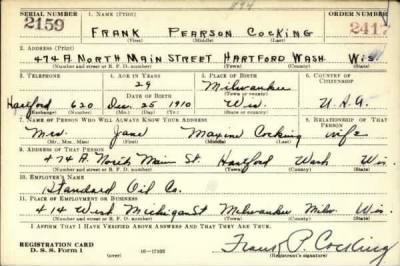 SERIAL NUMBER 1. NAME (Print) 894 ORDER NUMBER
2159 FRANK PEARSON COCKING 2417
(First) (Middle) (Last)
2. ADDRESS (Print)
474A NORTH MAIN STREET HARTFORD WASH WIS.
(Number and street or R. F. D. number) (Town) (County) (State)
3. TELEPHONE 4. AGE IN YEARS 5. PLACE OF BIRTH 6. COUNTRY OF CITIZENSHIP
29 Milwaukee
DATE OF BIRTH (Town or county)
Hartford 620 Dec. 25 1910 Wis. U.S.A.
(Exchange) (Number) (Mo.) (Day) (Yr.) (State or country)
7. NAME OF PERSON WHO WILL ALWAYS KNOW YOUR ADDRESS 8. RELATIONSHIP OF THAT PERSON
Mrs. Jane Maxine Cocking wife
(Mr., Mrs., Miss) (First) (Middle) (Last)
9. ADDRESS OF THAT PERSON
474A. North Main St. Hartford Wash Wis
(Number and street or R. F. D. number) (Town) (County) (State)
10. EMPLOYER'S NAME
Standard Oil Co.
11. PLACE OF EMPLOYMENT OR BUSINESS
414 West Michigan St Milwaukee Milw. Wis.
(Number and street or R. F. D. number) (Town) (County) (State)
I AFFIRM THAT I HAVE VERIFIED ABOVE ANSWERS AND THAT THEY ARE TRUE.
REGISTRATION CARD
D. S. S. Form 1 (over) 16—17105 Frank P. Cocking
(Registrant's signature)